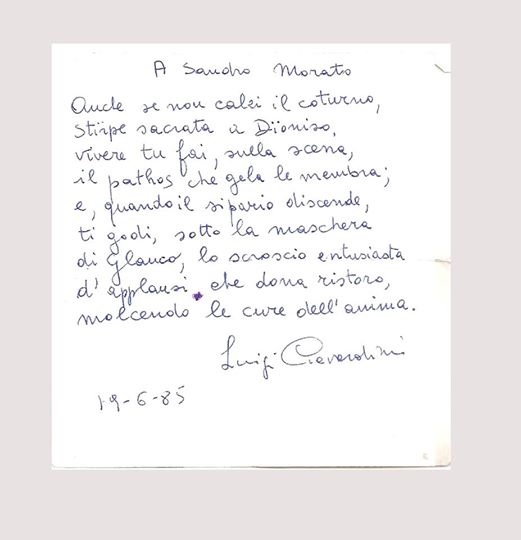 A Sandro Morato
Anche se non calzi il coturno,
stirpe sacrata a Dïoniso,
vivere tu fai, sulla scena,
il pathos che gela le membra;
e, quando il sipario discende,
ti godi, sotto la maschera
di Glauco, lo scroscio entusiasta
d'applausi che dona ristoro,
molcendo le cure dell'anima.
Luigi Ciavardini
19-6-85